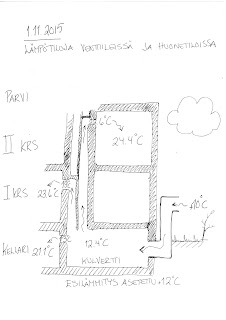 1.11.2015
LÄMPÖTILOJA VENTTIILEISSÄ JA HUONETILOISSA
PARVI
24.4°C
II KRS
I KRS
23.6°C
KELLARI
21.1°C
12.4°C
KULVERTTI
ESILÄMMITYS ASETETTU +12°C